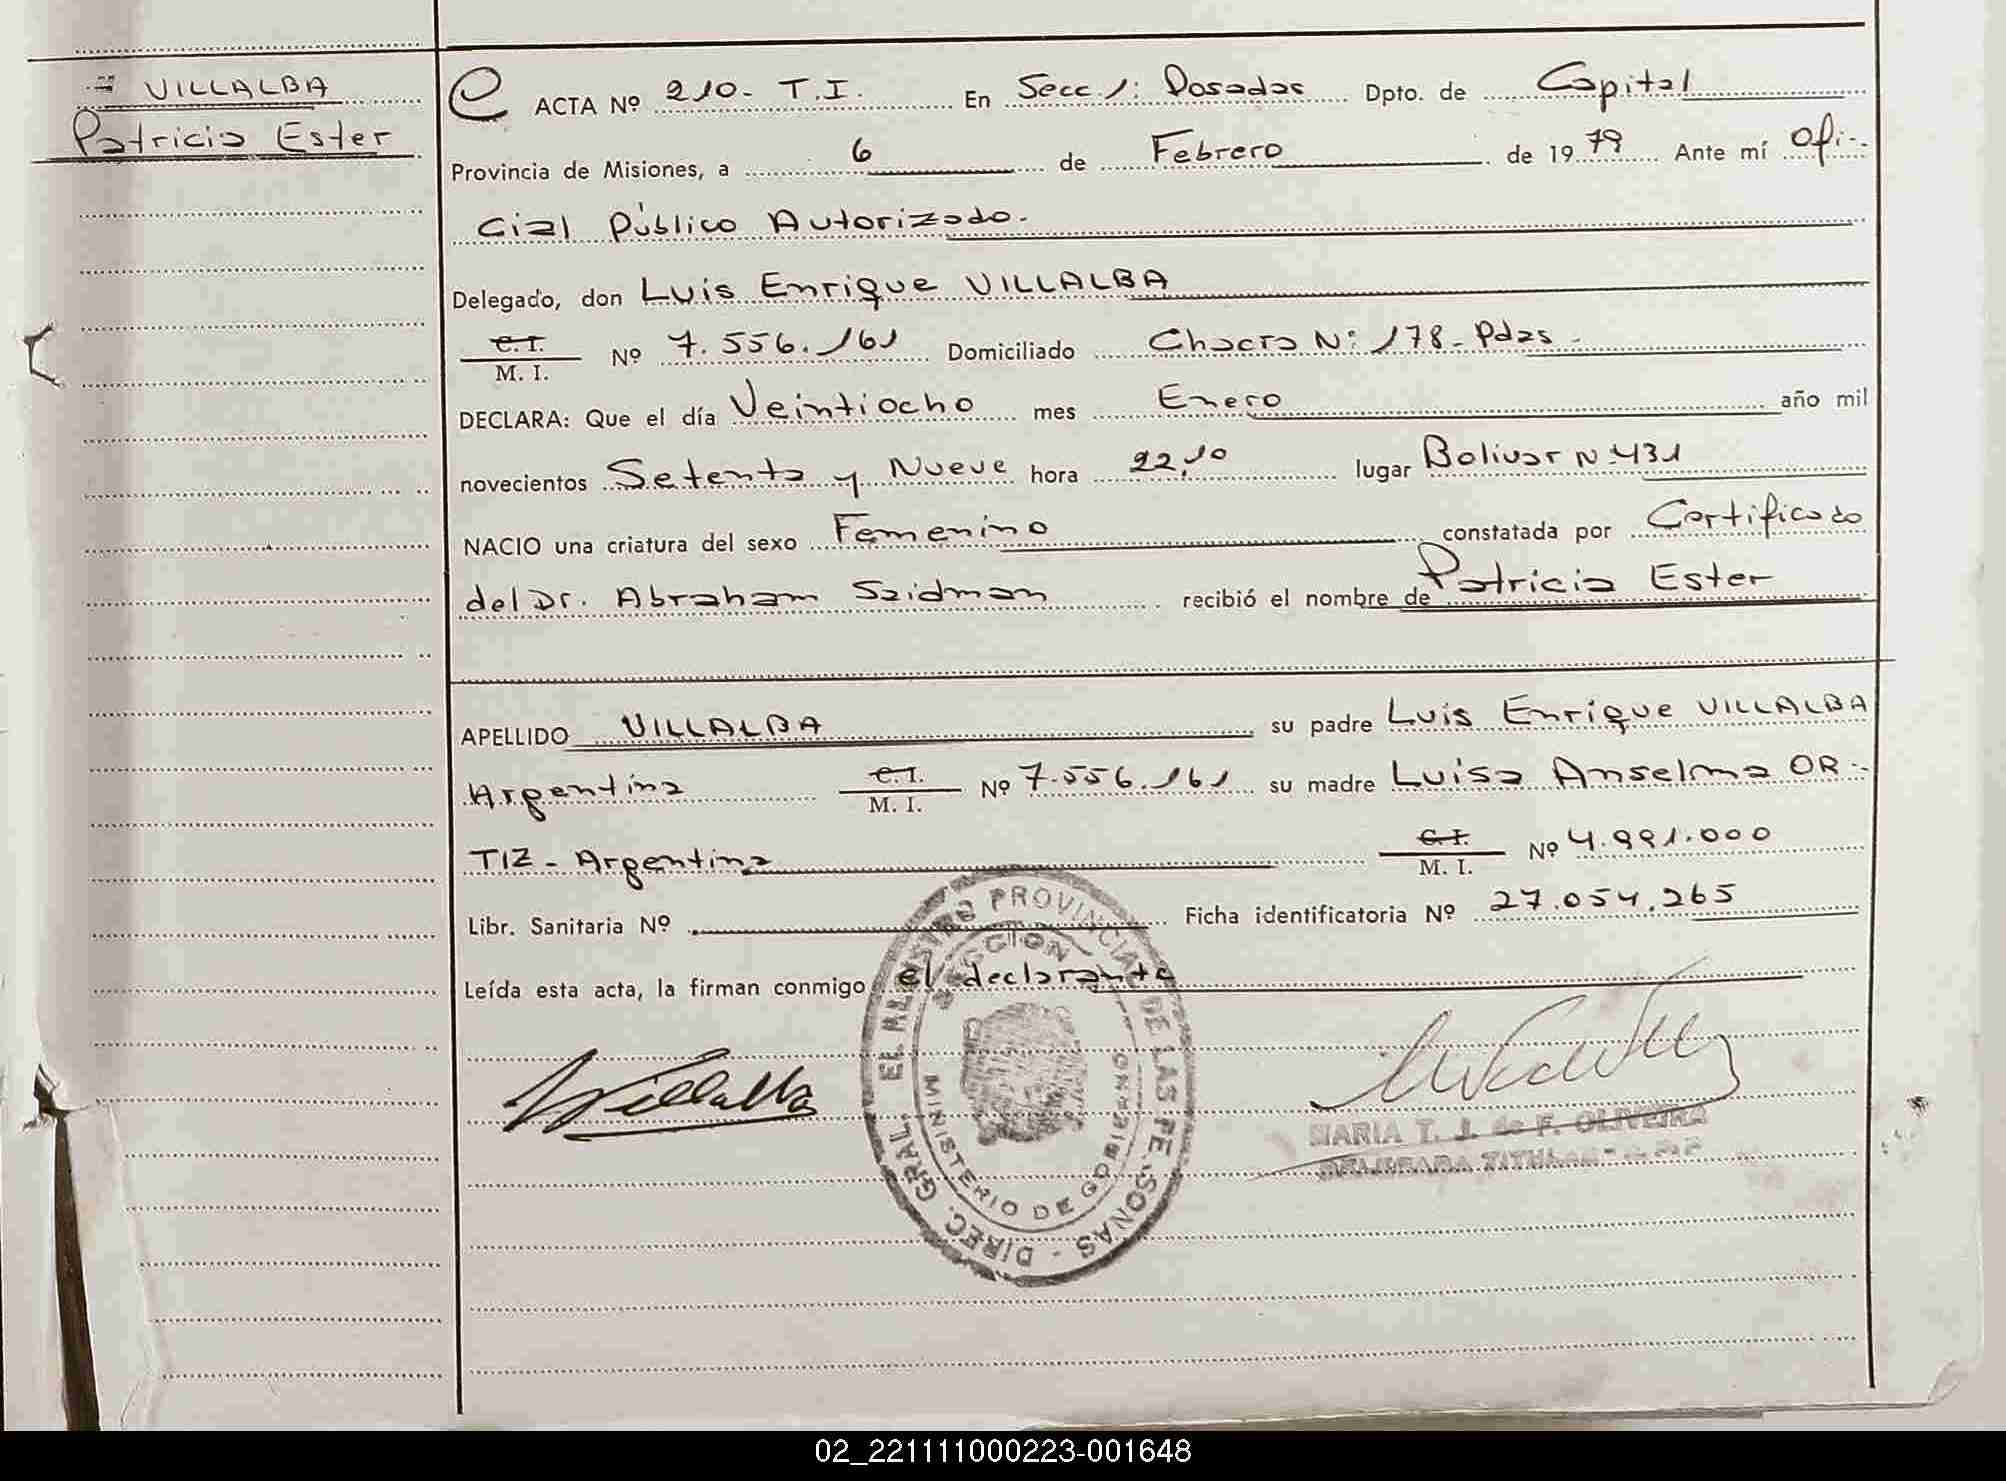 VILLALBA
Patricia Ester
ACTA Nº 210- T.I. En Secc. 1: Posadas Dpto. de Capital
Provincia de Misiones, a 6 de Febrero de 1979 Ante mí Ofi-
cial Público Autorizado.
Delegado, don Luis Enrique VILLALBA
C.I.
M. I. Nº 7.556.161 Domiciliado Chacra Nº 178- Pdas-
DECLARA: Que el día Veintiocho mes Enero año mil
novecientos Setenta y Nueve hora 22,10 lugar Bolivar Nº 431
NACIO una criatura del sexo Femenino constatada por Certificado
del Dr. Abraham Saidman recibió el nombre de Patricia Ester
APELLIDO VILLALBA su padre Luis Enrique VILLALBA
Argentina C.I. M. I. Nº 7.556.161 su madre Luisa Anselma OR-
TIZ- Argentina C.I. M. I. Nº 4.991.000
Libr. Sanitaria Nº Ficha identificatoria Nº 27.054.265
Leída esta acta, la firman conmigo el declarante
Villalba
DIREC. GRAL. EL REGISTRO PROVINCIAL DE LAS PERSONAS -
MINISTERIO DE GOBIERNO
MARIA T. J. de F. OLIVEIRA
02_221111000223-001648